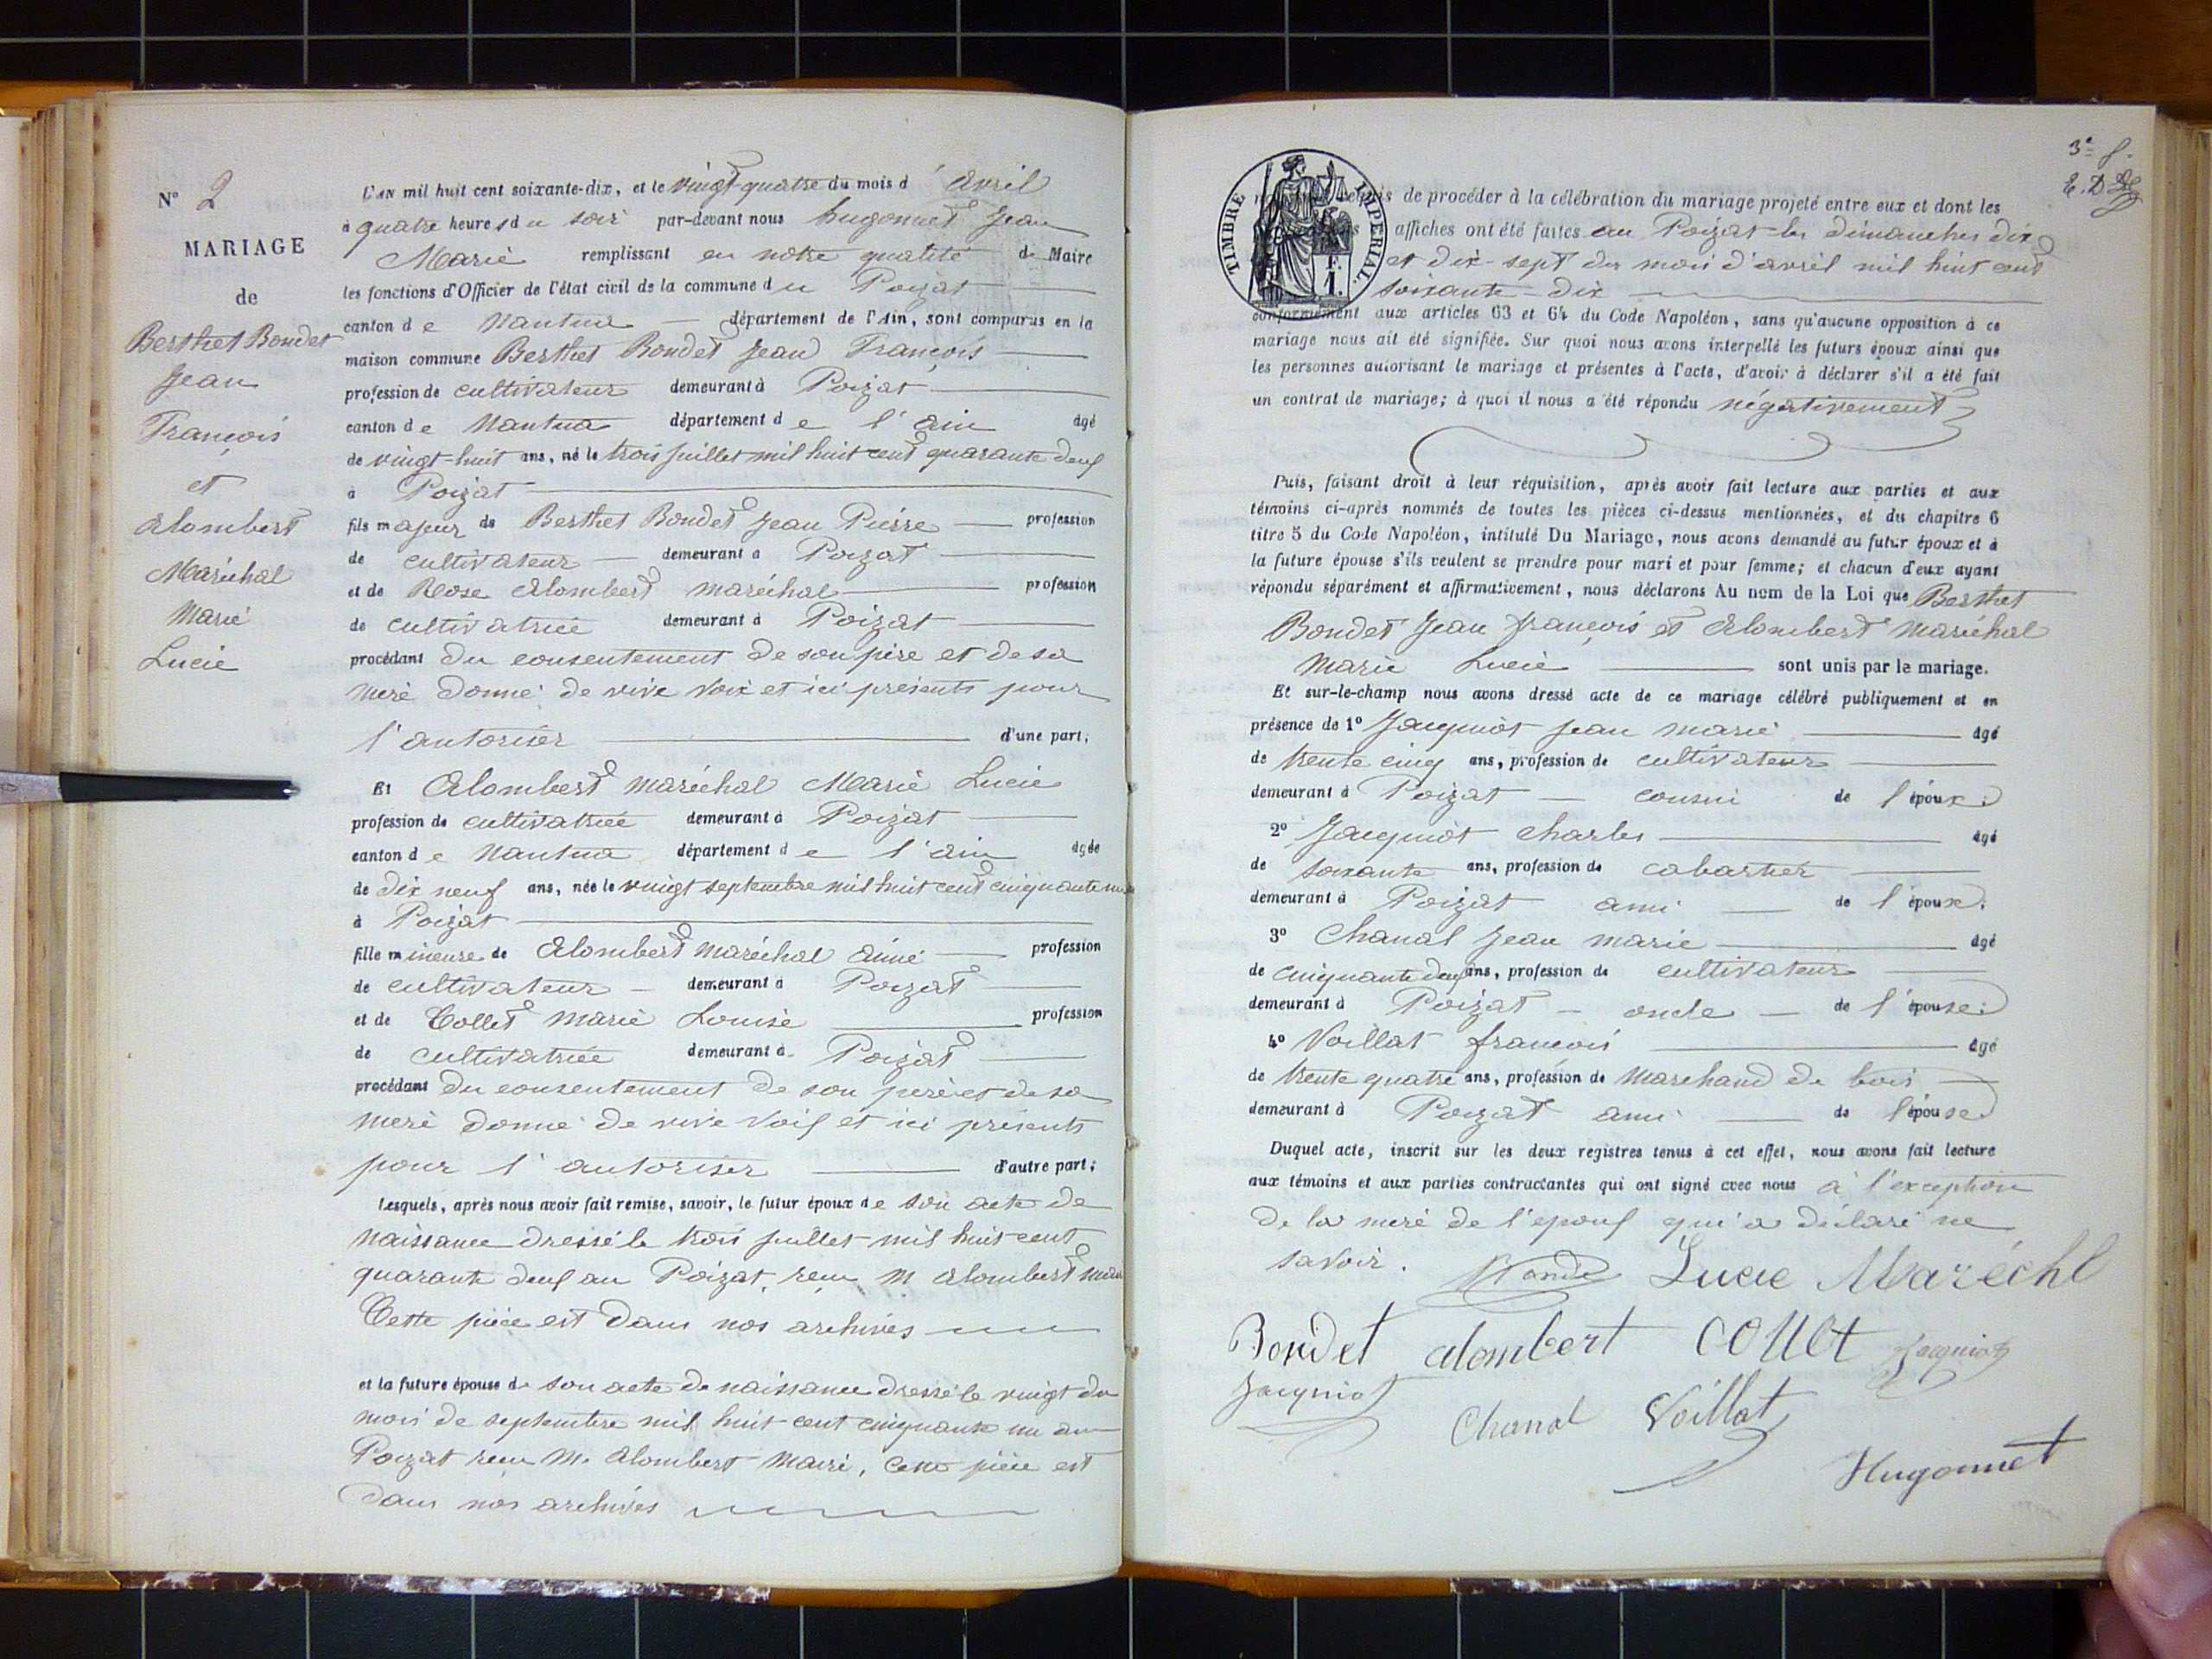 N° 2
MARIAGE
de
Berthet Bondet
Jean
François
et
Alombert
Maréchal
Marie
Lucie
L'AN mil huit cent soixante-dix, et le vingt-quatre du mois d'avril
à quatre heures du soir par-devant nous hugonnet Jean
Marie remplissant en notre qualité de Maire
les fonctions d'Officier de l'état civil de la commune du Poizat
canton de Nantua département de l'Ain, sont comparus en la
maison commune Berthet Bondet Jean François
profession de cultivateur demeurant à Poizat
canton de Nantua département de l'ain âgé
de vingt-huit ans, né le trois juillet mil huit cent quarante deux
à Poizat
fils majeur de Berthet Bondet Jean Pierre profession
de cultivateur demeurant à Poizat
et de Rose Alombert maréchal profession
de cultivatrice demeurant à Poizat
procédant du consentement de son père et de sa
mère donné de vive voix et ici présents pour
l'autoriser d'une part;
Et Alombert maréchal Marie Lucie
profession de cultivatrice demeurant à Poizat
canton de Nantua département de l'ain âgée
de dix neuf ans, née le vingt septembre mil huit cent cinquante un
à Poizat
fille mineure de Alombert maréchal aimé profession
de cultivateur demeurant à Poizat
et de Collet Marie Louise profession
de cultivatrice demeurant à Poizat
procédant du consentement de son père et de sa
mère donné de vive voix et ici présents
pour l'autoriser d'autre part;
Lesquels, après nous avoir fait remise, savoir, le futur époux de son acte de
naissance dressé le trois juillet mil huit cent
quarante deux au Poizat, reçu M alombert
Cette pièce est dans nos archives
et la future épouse de son acte de naissance dressé le vingt du
mois de septembre mil huit cent cinquante un au
Poizat reçu M. Alombert Maire, Cette pièce est
dans nos archives
3e f.
TIMBRE IMPERIAL
1 F.
requis de procéder à la célébration du mariage projeté entre eux et dont les
affiches ont été faites au Poizat les dimanches dix
et dix-sept du mois d'avril mil huit cent
soixante-dix
conformément aux articles 63 et 64 du Code Napoléon, sans qu'aucune opposition à ce
mariage nous ait été signifiée. Sur quoi nous avons interpellé les futurs époux ainsi que
les personnes autorisant le mariage et présentes à l'acte, d'avoir à déclarer s'il a été fait
un contrat de mariage; à quoi il nous a été répondu négativement
Puis, faisant droit à leur réquisition, après avoir fait lecture aux parties et aux
témoins ci-après nommés de toutes les pièces ci-dessus mentionnées, et du chapitre 6
titre 5 du Code Napoléon, intitulé Du Mariage, nous avons demandé au futur époux et à
la future épouse s'ils veulent se prendre pour mari et pour femme; et chacun d'eux ayant
répondu séparément et affirmativement, nous déclarons Au nom de la Loi que Berthet
Bondet Jean françois et Alombert Maréchal
Marie Lucie sont unis par le mariage.
Et sur-le-champ nous avons dressé acte de ce mariage célébré publiquement et en
présence de 1° Jacquiot Jean marie âgé
de trente cinq ans, profession de cultivateur
demeurant à Poizat cousin de l'époux;
2° Jacquiot Charles âgé
de soixante ans, profession de cabartier
demeurant à Poizat ami de l'époux;
3° Chanal Jean marie âgé
de cinquante deux ans, profession de cultivateur
demeurant à Poizat oncle de l'épouse;
4° Voillat françois âgé
de trente quatre ans, profession de Marchand de bois
demeurant à Poizat ami de l'épouse
Duquel acte, inscrit sur les deux registres tenus à cet effet, nous avons fait lecture
aux témoins et aux parties contractantes qui ont signé avec nous à l'exception
de la mère de l'époux qui a déclaré ne
savoir.
Lucie Maréchl
Bondet alombert Collet Jacquiot
Jacquiot
Chanal Voillat
Hugonnet